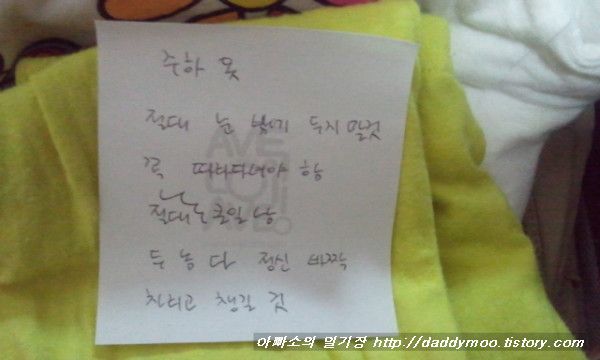 주하 옷
절대 눈 밖에 두지 말것
꼭 따라다녀야 함
절대 큰일 남
두 놈 다 정신 바짝
차리고 챙길 것
아빠소의 일기장 http://daddymoo.tistory.com